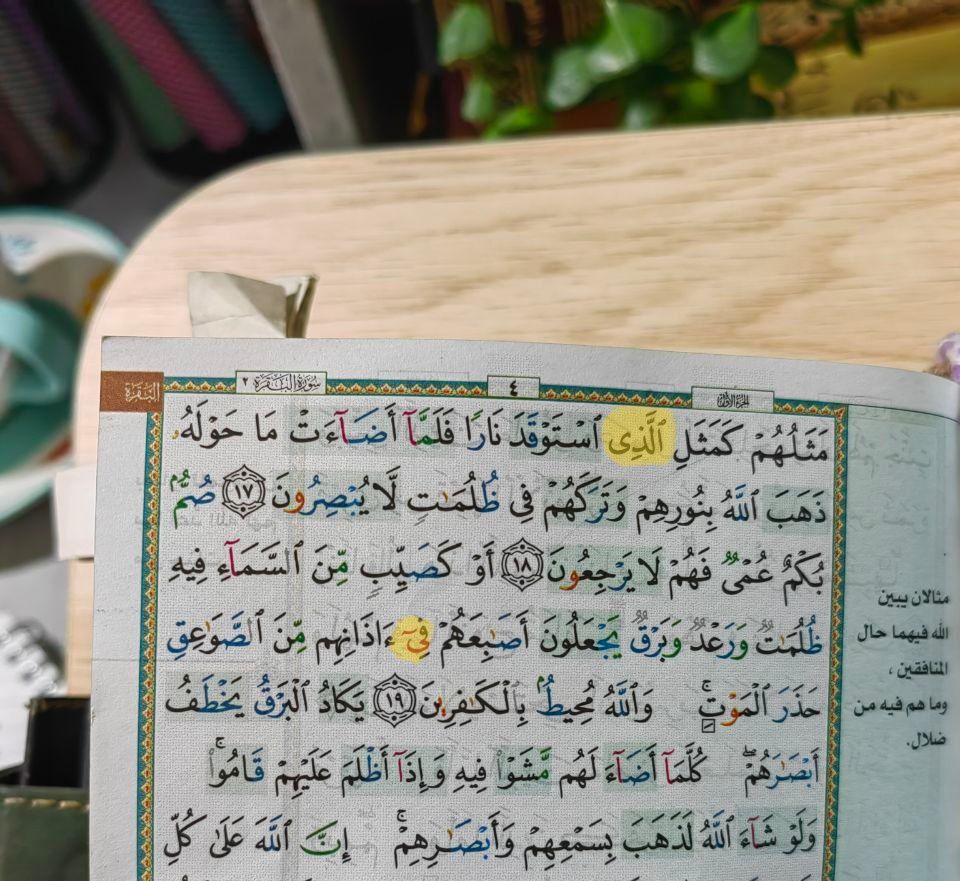 البَقَرَة
سُورَةُ البَقَرَةِ ٢
٤
الجزء الأول
مَثَلُهُمْ كَمَثَلِ ٱلَّذِى ٱسْتَوْقَدَ نَارًا فَلَمَّآ أَضَآءَتْ مَا حَوْلَهُۥ
ذَهَبَ ٱللَّهُ بِنُورِهِمْ وَتَرَكَهُمْ فِى ظُلُمَـٰتٍ لَّا يُبْصِرُونَ ١٧ صُمٌّۢ
بُكْمٌ عُمْىٌ فَهُمْ لَا يَرْجِعُونَ ١٨ أَوْ كَصَيِّبٍ مِّنَ ٱلسَّمَآءِ فِيهِ
ظُلُمَـٰتٌ وَرَعْدٌ وَبَرْقٌ يَجْعَلُونَ أَصَـٰبِعَهُمْ فِىٓ ءَاذَانِهِم مِّنَ ٱلصَّوَٰعِقِ
حَذَرَ ٱلْمَوْتِ ۚ وَٱللَّهُ مُحِيطٌۢ بِٱلْكَـٰفِرِينَ ١٩ يَكَادُ ٱلْبَرْقُ يَخْطَفُ
أَبْصَـٰرَهُمْ ۖ كُلَّمَآ أَضَآءَ لَهُم مَّشَوْا۟ فِيهِ وَإِذَآ أَظْلَمَ عَلَيْهِمْ قَامُوا۟ ۚ
وَلَوْ شَآءَ ٱللَّهُ لَذَهَبَ بِسَمْعِهِمْ وَأَبْصَـٰرِهِمْ ۚ إِنَّ ٱللَّهَ عَلَىٰ كُلِّ
مثالان يبين
الله فيهما حال
المنافقين ،
وما هم فيه من
ضلال.